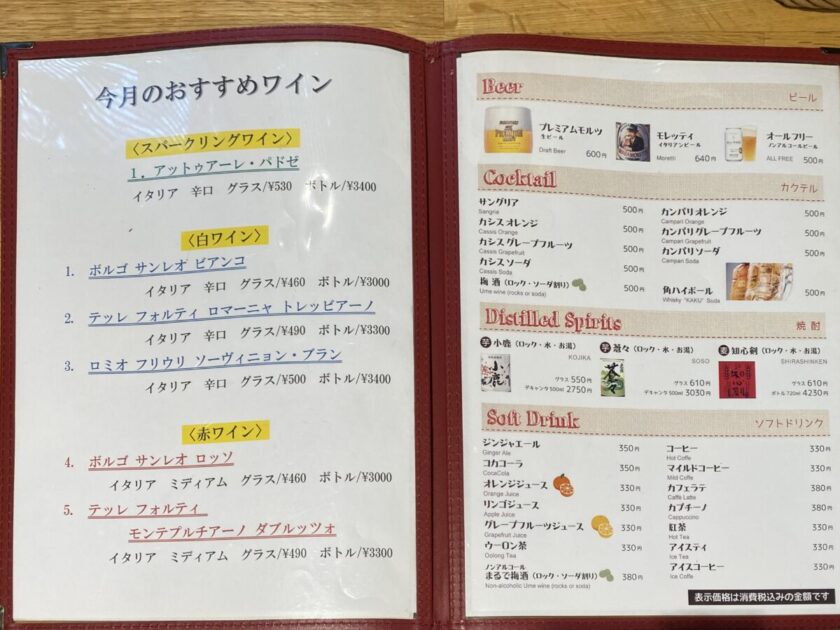 今月のおすすめワイン
〈スパークリングワイン〉
1．アットゥアーレ・パドゼ
イタリア 辛口 グラス/¥530 ボトル/¥3400
〈白ワイン〉
1. ボルゴ サンレオ ビアンコ
イタリア 辛口 グラス/¥460 ボトル/¥3000
2. テッレ フォルティ ロマーニャ トレッビアーノ
イタリア 辛口 グラス/¥490 ボトル/¥3300
3. ロミオ フリウリ ソーヴィニョン・ブラン
イタリア 辛口 グラス/¥500 ボトル/¥3400
〈赤ワイン〉
4. ボルゴ サンレオ ロッソ
イタリア ミディアム グラス/¥460 ボトル/¥3000
5. テッレ フォルティ
モンテプルチアーノ ダブルッツォ
イタリア ミディアム グラス/¥490 ボトル/¥3300
Beer ビール
プレミアムモルツ
生ビール
Draft Beer 600円
モレッティ
イタリアンビール
Moretti 640円
オールフリー
ノンアルコールビール
ALL FREE 500円
Cocktail カクテル
サングリア 500円
Sangria
カシスオレンジ 500円
Cassis Orange
カシスグレープフルーツ 500円
Cassis Grapefruit
カシスソーダ 500円
Cassis Soda
梅酒（ロック・ソーダ割り） 500円
Ume wine (rocks or soda)
カンパリオレンジ 500円
Campari Orange
カンパリグレープフルーツ 500円
Campari Grapefruit
カンパリソーダ 500円
Campari Soda
角ハイボール 500円
Whisky "KAKU" Soda
Distilled Spirits 焼酎
芋 小鹿（ロック・水・お湯）
KOJIKA
小鹿
グラス 550円
デキャンタ 500ml 2750円
芋 蒼々（ロック・水・お湯）
SOSO
蒼々
グラス 610円
デキャンタ 500ml 3030円
麦 知心剣（ロック・水・お湯）
SHIRASHINKEN
グラス 610円
ボトル 720ml 4230円
Soft Drink ソフトドリンク
ジンジャエール 350円
Ginger Ale
コカコーラ 350円
CocaCola
オレンジジュース 330円
Orange Juice
リンゴジュース 330円
Apple Juice
グレープフルーツジュース 330円
Grapefruit Juice
ウーロン茶 330円
Oolong Tea
ノンアルコール
まるで梅酒（ロック・ソーダ割り） 380円
Non-alcoholic Ume wine (rocks or soda)
コーヒー 330円
Hot Coffe
マイルドコーヒー 330円
Mild Coffe
カフェラテ 380円
Caffè Latte
カプチーノ 380円
Cappuccino
紅茶 330円
Hot Tea
アイスティ 330円
Ice Tea
アイスコーヒー 330円
Ice Coffe
表示価格は消費税込みの金額です